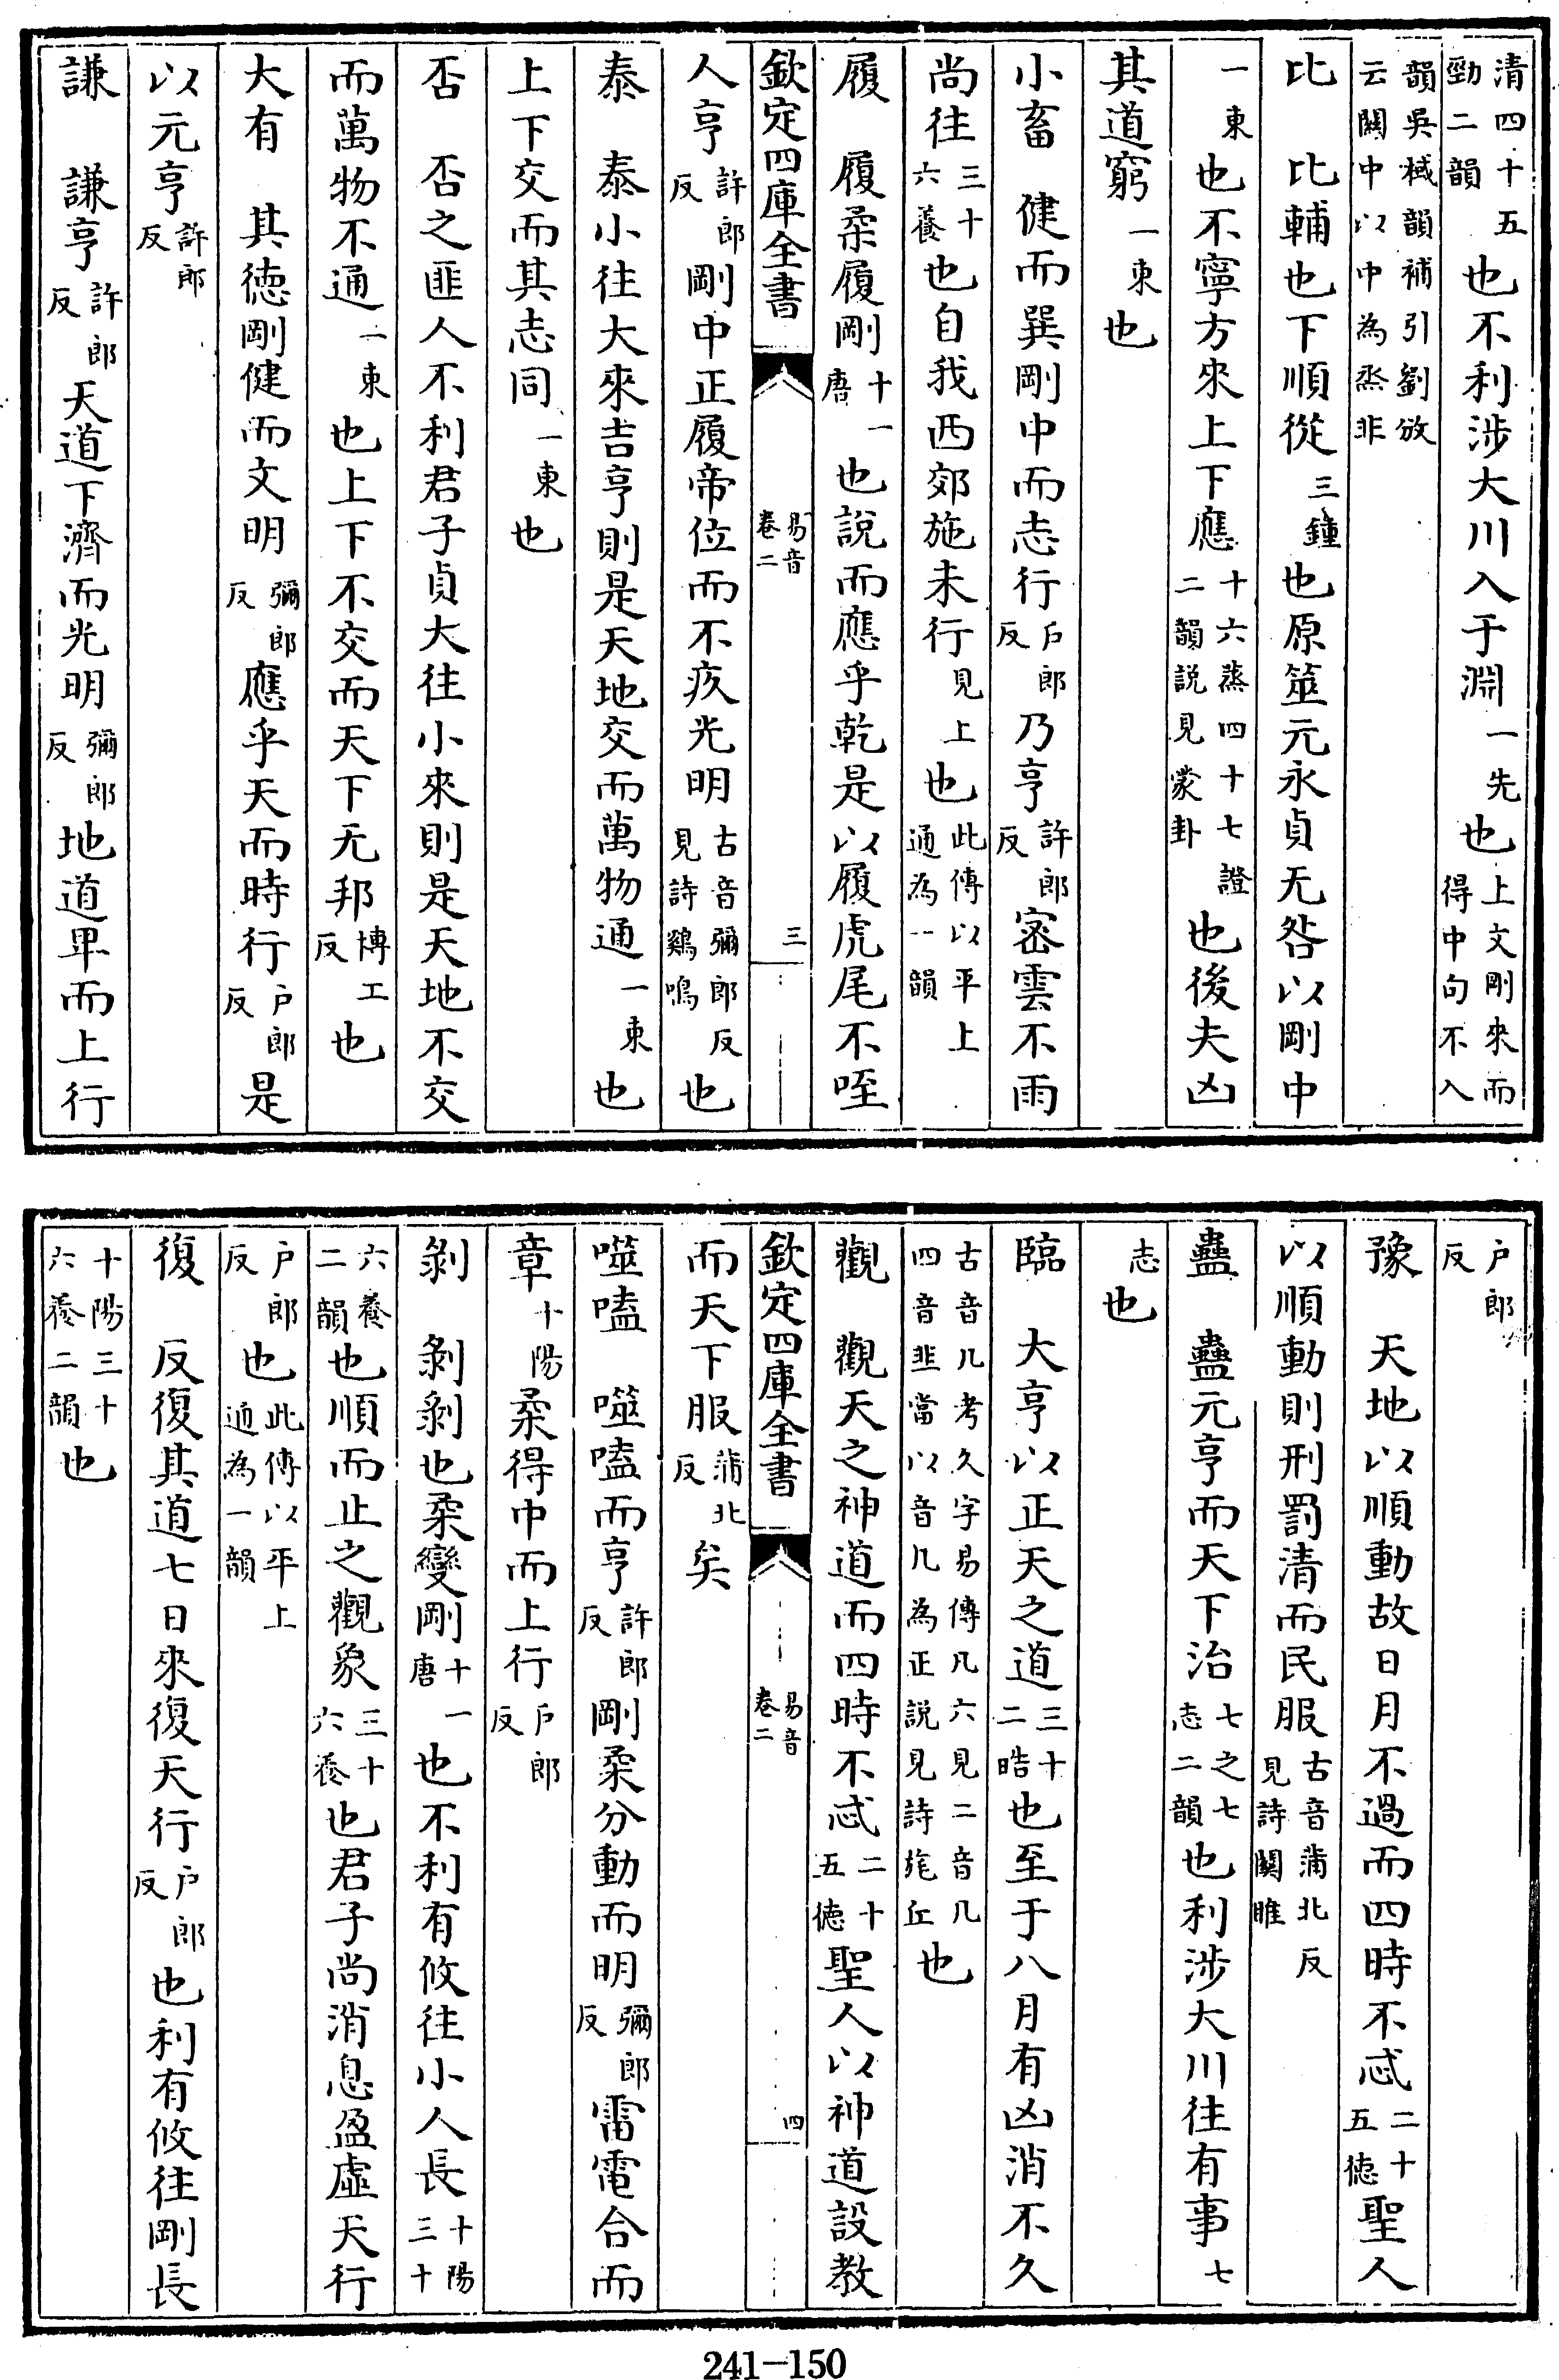 清四十五勁二韻也不利涉大川入于淵一先也上文剛來而得中句不入
韻吳棫韻補引劉攽云關中以中為烝非
比　比輔也下順從三鍾也原筮元永貞无咎以剛中
一東也不寧方來上下應十六蒸四十七證二韻説見蒙卦也後夫凶
其道窮一東也
小畜　健而巽剛中而志行户郎反乃亨許郎反密雲不雨
尚往三十六養也自我西郊施未行見上也此傳以平上通為一韻
履　履柔履剛十一唐也説而應乎乾是以履虎尾不咥
欽定四庫全書　易音卷二　三
人亨許郎反剛中正履帝位而不疚光明古音彌郎反見詩鷄鳴也
泰　泰小往大來吉亨則是天地交而萬物通一東也
上下交而其志同一東也
否　否之匪人不利君子貞大往小來則是天地不交
而萬物不通一東也上下不交而天下无邦博工反也
大有　其徳剛健而文明彌郎反應乎天而時行户郎反是
以元亨許郎反
謙　謙亨許郎反天道下濟而光明彌郎反地道卑而上行
户郎反
豫　天地以順動故日月不過而四時不忒二十五徳聖人
以順動則刑罰清而民服古音蒲北反見詩關雎
蠱　蠱元亨而天下治七之七志二韻也利涉大川往有事七
志也
臨　大亨以正天之道三十二晧也至于八月有凶消不久
古音几考久字易傳凡六見二音几四音韭當以音几為正説見詩旄丘也
觀　觀天之神道而四時不忒二十五徳聖人以神道設教
欽定四庫全書　易音卷二　四
而天下服蒲北反矣
噬嗑　噬嗑而亨許郎反剛柔分動而明彌郎反雷電合而
章十陽柔得中而上行户郎反
剝　剝剝也柔變剛十一唐也不利有攸往小人長十陽三十
六養二韻也順而止之觀象三十六養也君子尚消息盈虛天行
户郎反也此傳以平上通為一韻
復　反復其道七日來復天行户郎反也利有攸往剛長
十陽三十六養二韻也
241-150